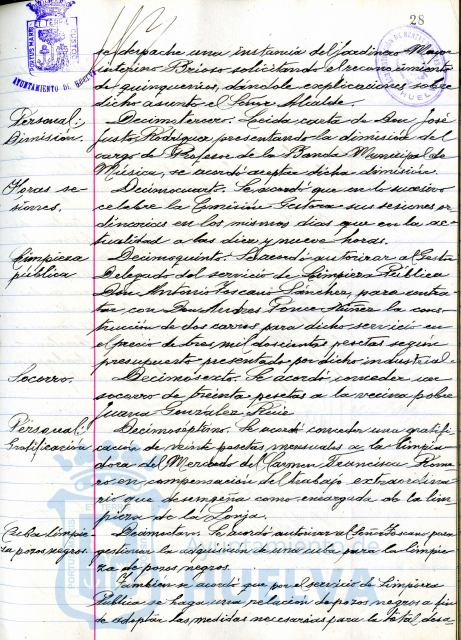 28
PORTUS MARIS ET TERRE CUSTODIA
AYUNTAMIENTO DE HUELVA
HUELVA
se despache una instancia del Jardinero Mayor
interino Brioso solicitando el reconocimiento
de quinquenios, dándole explicaciones sobre
dicho asunto el Señor Alcalde.
Personal:
Dimisión.
Decimotercero. Leida carta de Don José
Justo Rodríguez, presentando la dimisión del
cargo de Profesor de la Banda Municipal de
Música, se acordó aceptar dicha dimisión.
Horas se
siones.
Decimocuarto. Se acordó que en lo sucesivo
celebre la Comisión Gestora sus sesiones or-
dinarias en los mismos días que en la ac-
tualidad a las diez y nueve horas.
Limpieza
pública
Decimoquinto. Se acordó autorizar al Gestor
Delegado del servicio de Limpieza Pública
Don Antonio Toscano Sánchez, para contra-
tar con Don Andrés Ponce Núñez la cons-
trucción de dos carros para dicho servicio en
el precio de tres mil doscientas pesetas según
presupuesto presentado por dicho industrial.
Socorro.
Decimosexto. Se acordó conceder un
socorro de treinta pesetas a la vecina pobre
Juana González
Personal
Gratificación
Decimoséptimo. Se acordó conceder una gratifi-
cación de veinte pesetas mensuales a la limpia-
dora del Mercado del Carmen Francisca Rome-
ro en compensación del trabajo extraordina-
rio que desempeña como encargada de la lim-
pieza de la Lonja.
Cuba limpie
za pozos negros.
Decimoctavo. Se acordó autorizar al Señor Toscano para
gestionar la adquisición de una cuba para la limpie-
za de pozos negros.
Tambien se acordó que por el servicio de Limpieza
Pública se haga una relación de pozos negros a fin
de adoptar las medidas necesarias para la total desa-
HUELVA